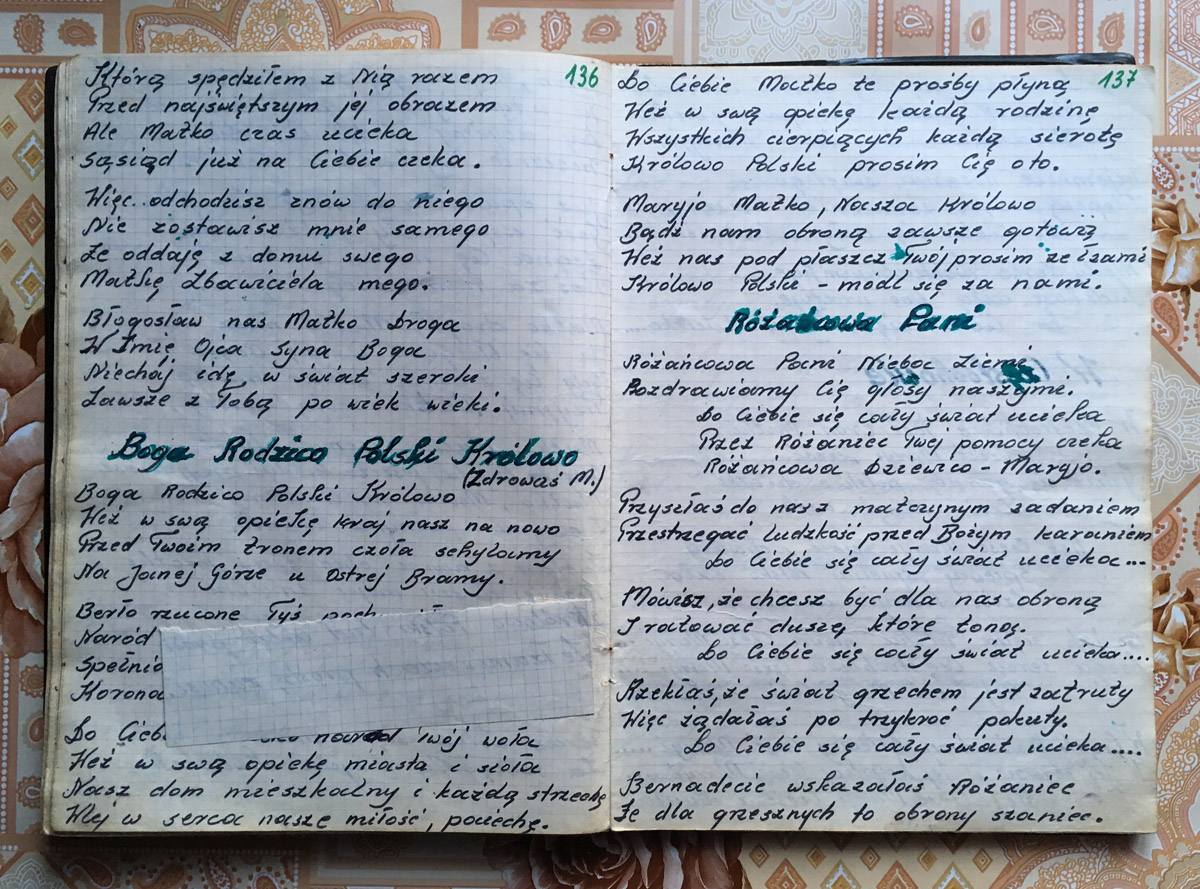 136
Którą spędziłem z Nią razem
Przed najświętszym jej obrazem
Ale Matko czas ucieka
Sąsiąd już na Ciebie czeka.
Więc odchodzisz znów do niego
Nie zostawisz mnie samego
Że oddaję z domu swego
Matkę Zbawiciela mego.
Błogosław nas Matko Droga
W Imię Ojca Syna Boga
Niechaj idę w świat szeroki
Zawsze z Tobą po wiek wieki.
Boga Rodzico Polski Królowo
(Zdrowaś M.)
Boga Rodzico Polski Królowo
Weź w swą opiekę kraj nasz na nowo
Przed Twoim tronem czoła schylamy
Na Jasnej Górze u Ostrej Bramy.
Berło rzucone Tyś
Naród
Korona
Do naród Twój woła
Weź w swą opiekę miasta i sioła
Nasz dom mieszkalny i każdą strzechę
Wlej w serca nasze miłość, pociechę.
137
Do Ciebie Matko te prośby płyną
Weź w swą opiekę każdą rodzinę
Wszystkich cierpiących każdą sierotę
Królowo Polski prosim Cię oto.
Maryjo Matko, Nasza Królowo
Bądź nam obroną zawsze gotową
Weź nas pod płaszcz Twój prosim ze łzami
Królowo Polski - módl się za nami.
Różańcowa Pani
Różańcowa Pani Nieboc Ziemi
Pozdrawiamy Cię głosy naszymi.
Do Ciebie się cały świat ucieka
Przez Różaniec Twej pomocy czeka
Różańcowa Dziewico - Maryjo.
Przyszłaś do nas z matczynym zadaniem
Przestrzegać ludzkość przed Bożym karaniem
Do Ciebie się cały świat ucieka...
Mówisz, że chcesz być dla nas obroną
I ratować duszę, które toną.
Do Ciebie się cały świat ucieka....
Rzekłaś, że świat grzechem jest zatruty
Więc żądałaś po trzykroć pokuty.
Do Ciebie się cały świat ucieka....
Bernadecie wskazałaś Różaniec
Że dla grzesznych to obrony szaniec.